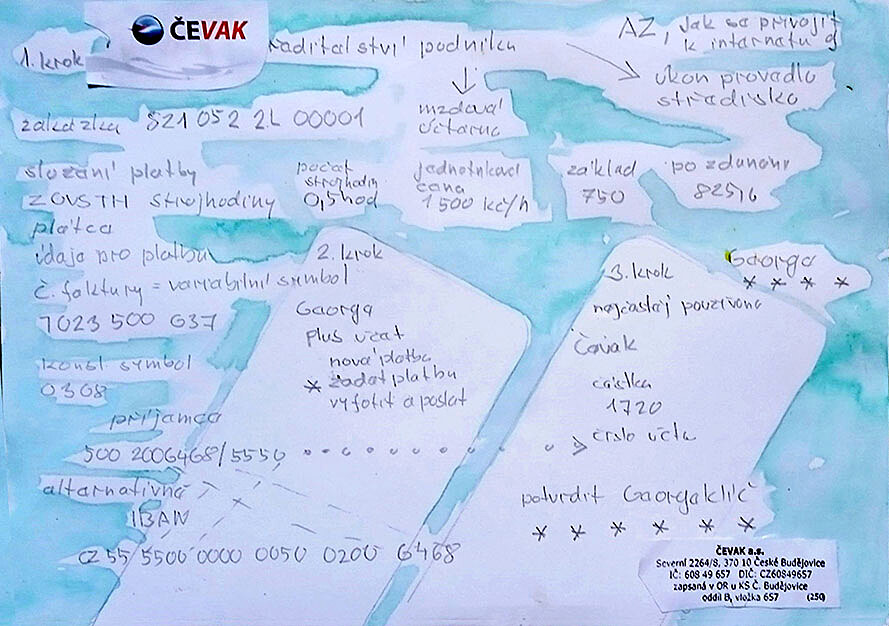 1. krok
ČEVAK
raditalství podniku
AZ, jak sa privojit
k internatu
úkon provadlo
stradisko
mzdová
účtarna
zakázka 521 052 2L 00001
složaní platby
ZOVSTH strojhodiny
počat
strojhodin
0,5 hod
jadnotková
cana
1 500 kč/h
základ
750
po zdanění
825,6
plátca
údaja pro platbu
č. faktury = variabilní symbol
7023 500 637
konst symbol
0308
příjamca
500 2006468/5550
altarnativně
IBAN
CZ 55 5500 0000 0050 0200 6468
2. krok
Gaorga
Plus účat
nová platba
* zadat platbu
vyfotit a poslat
3. krok
Gaorga
* * * *
najčastaj používana
Čavak
částka
1720
číslo účtu
potvrdit Gaorgaklíč
* * * * * *
ČEVAK a.s.
Severní 2264/8, 370 10 České Budějovice
IČ: 608 49 657 DIČ: CZ60849657
zapsaná v OR u KS Č. Budějovice
oddíl B, vložka 657 (250)